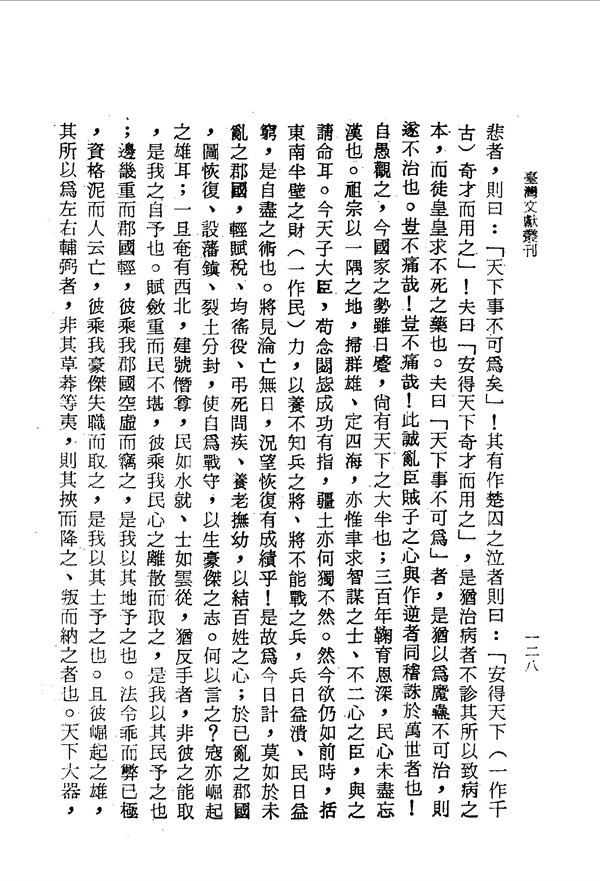 臺灣文獻叢刊
一二八
悲者，則曰：「天下事不可爲矣」！其有作楚囚之泣者則曰：「安得天下（一作千
古）奇才而用之」！夫曰「安得天下奇才而用之」，是猶治病者不診其所以致病之
本，而徒皇皇求不死之藥也。夫曰「天下事不可爲」者，是猶以爲魔蠱不可治，則
遂不治也。豈不痛哉！豈不痛哉！此誠亂臣賊子之心與作逆者同稽誅於萬世者也！
自愚觀之，今國家之勢雖日蹙，尙有天下之大半也；三百年鞠育恩深，民心未盡忘
漢也。祖宗以一隅之地，掃群雄、定四海，亦惟聿求智謀之士、不二心之臣，與之
請命耳。今天子大臣，苟念閎毖成功有指，疆土亦何獨不然。然今欲仍如前時，括
東南半壁之財（一作民）力，以養不知兵之將、將不能戰之兵，兵日益潰、民日益
窮，是自盡之術也。將見淪亡無日，況望恢復有成績乎！是故爲今日計，莫如於未
亂之郡國，輕賦稅、均徭役、弔死問疾、養老撫幼，以結百姓之心；於已亂之郡國
，圖恢復、設藩鎭、裂土分封，使自爲戰守，以生豪傑之志。何以言之？寇亦崛起
之雄耳；一旦奄有西北，建號僭尊，民如水就、士如雲從，猶反手者，非彼之能取
，是我之自予也。賦斂重而民不堪，彼乘我民心之離散而取之，是我以其民予之也
；邊畿重而郡國輕，彼乘我郡國空虛而竊之，是我以其地予之也。法令乖而弊已極
，資格泥而人云亡，彼乘我豪傑失職而取之，是我以其士予之也。且彼崛起之雄，
其所以爲左右輔弼者，非其草莽等夷，則其挾而降之、叛而納之者也。天下大器，